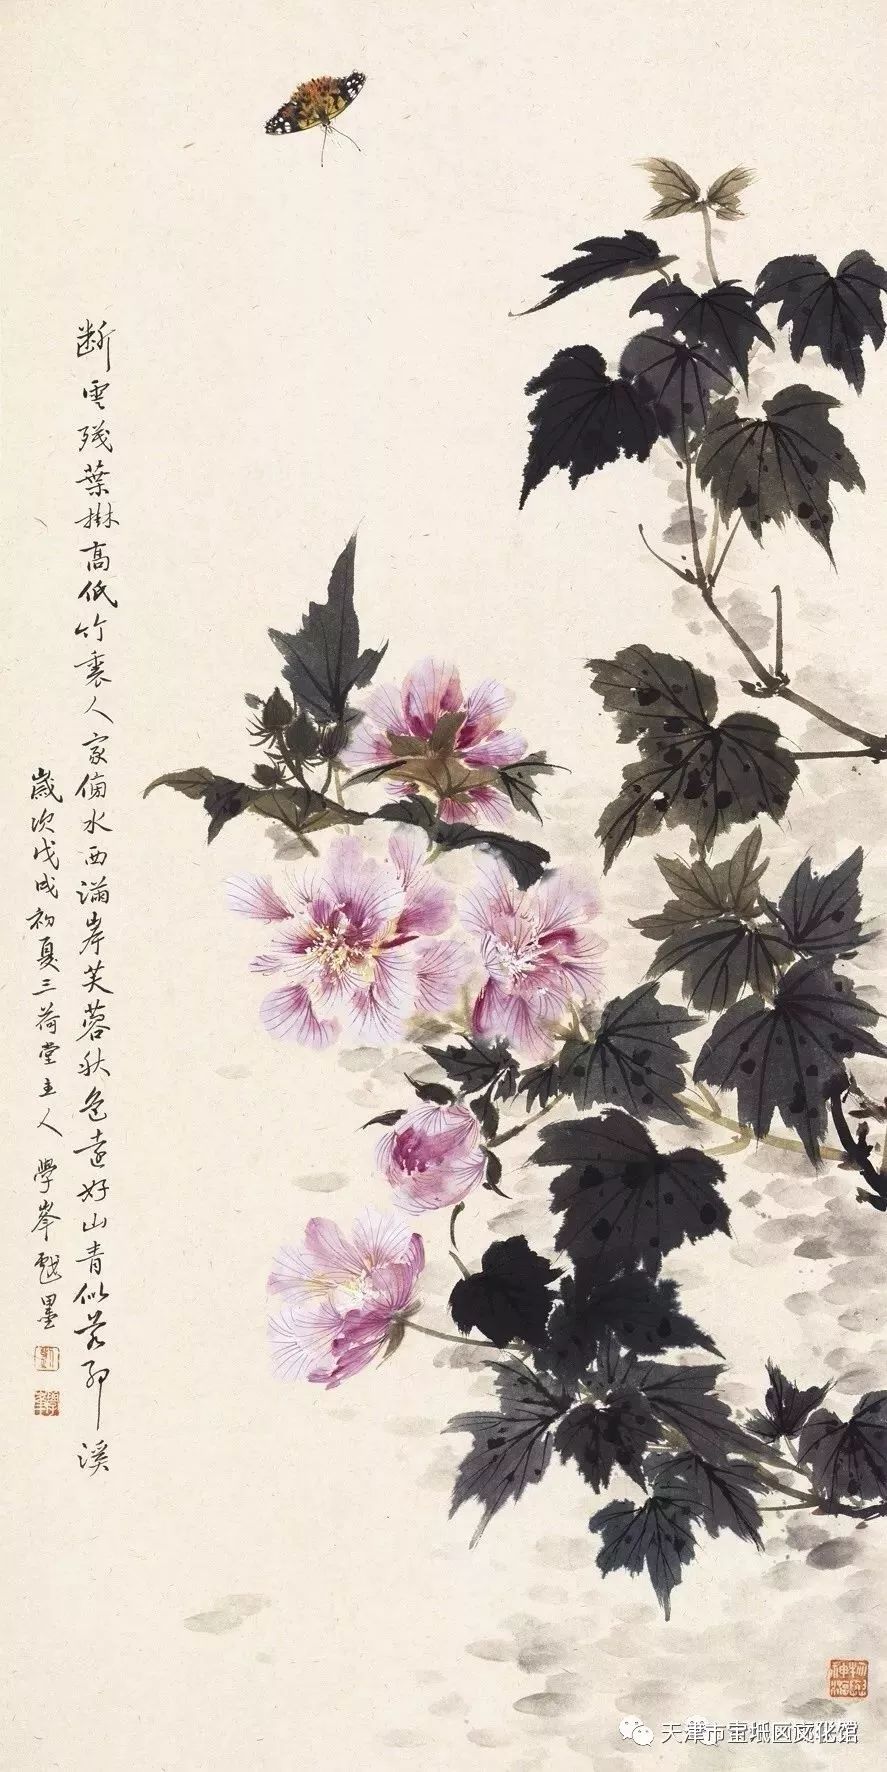 断雲殘葉樹高低竹裏人家傍水西滿岸芙蓉秋色遠好山青似若耶溪
歲次戊戌初夏三荷堂主人學峯戲墨
學峯
天津市宝坻区文化馆